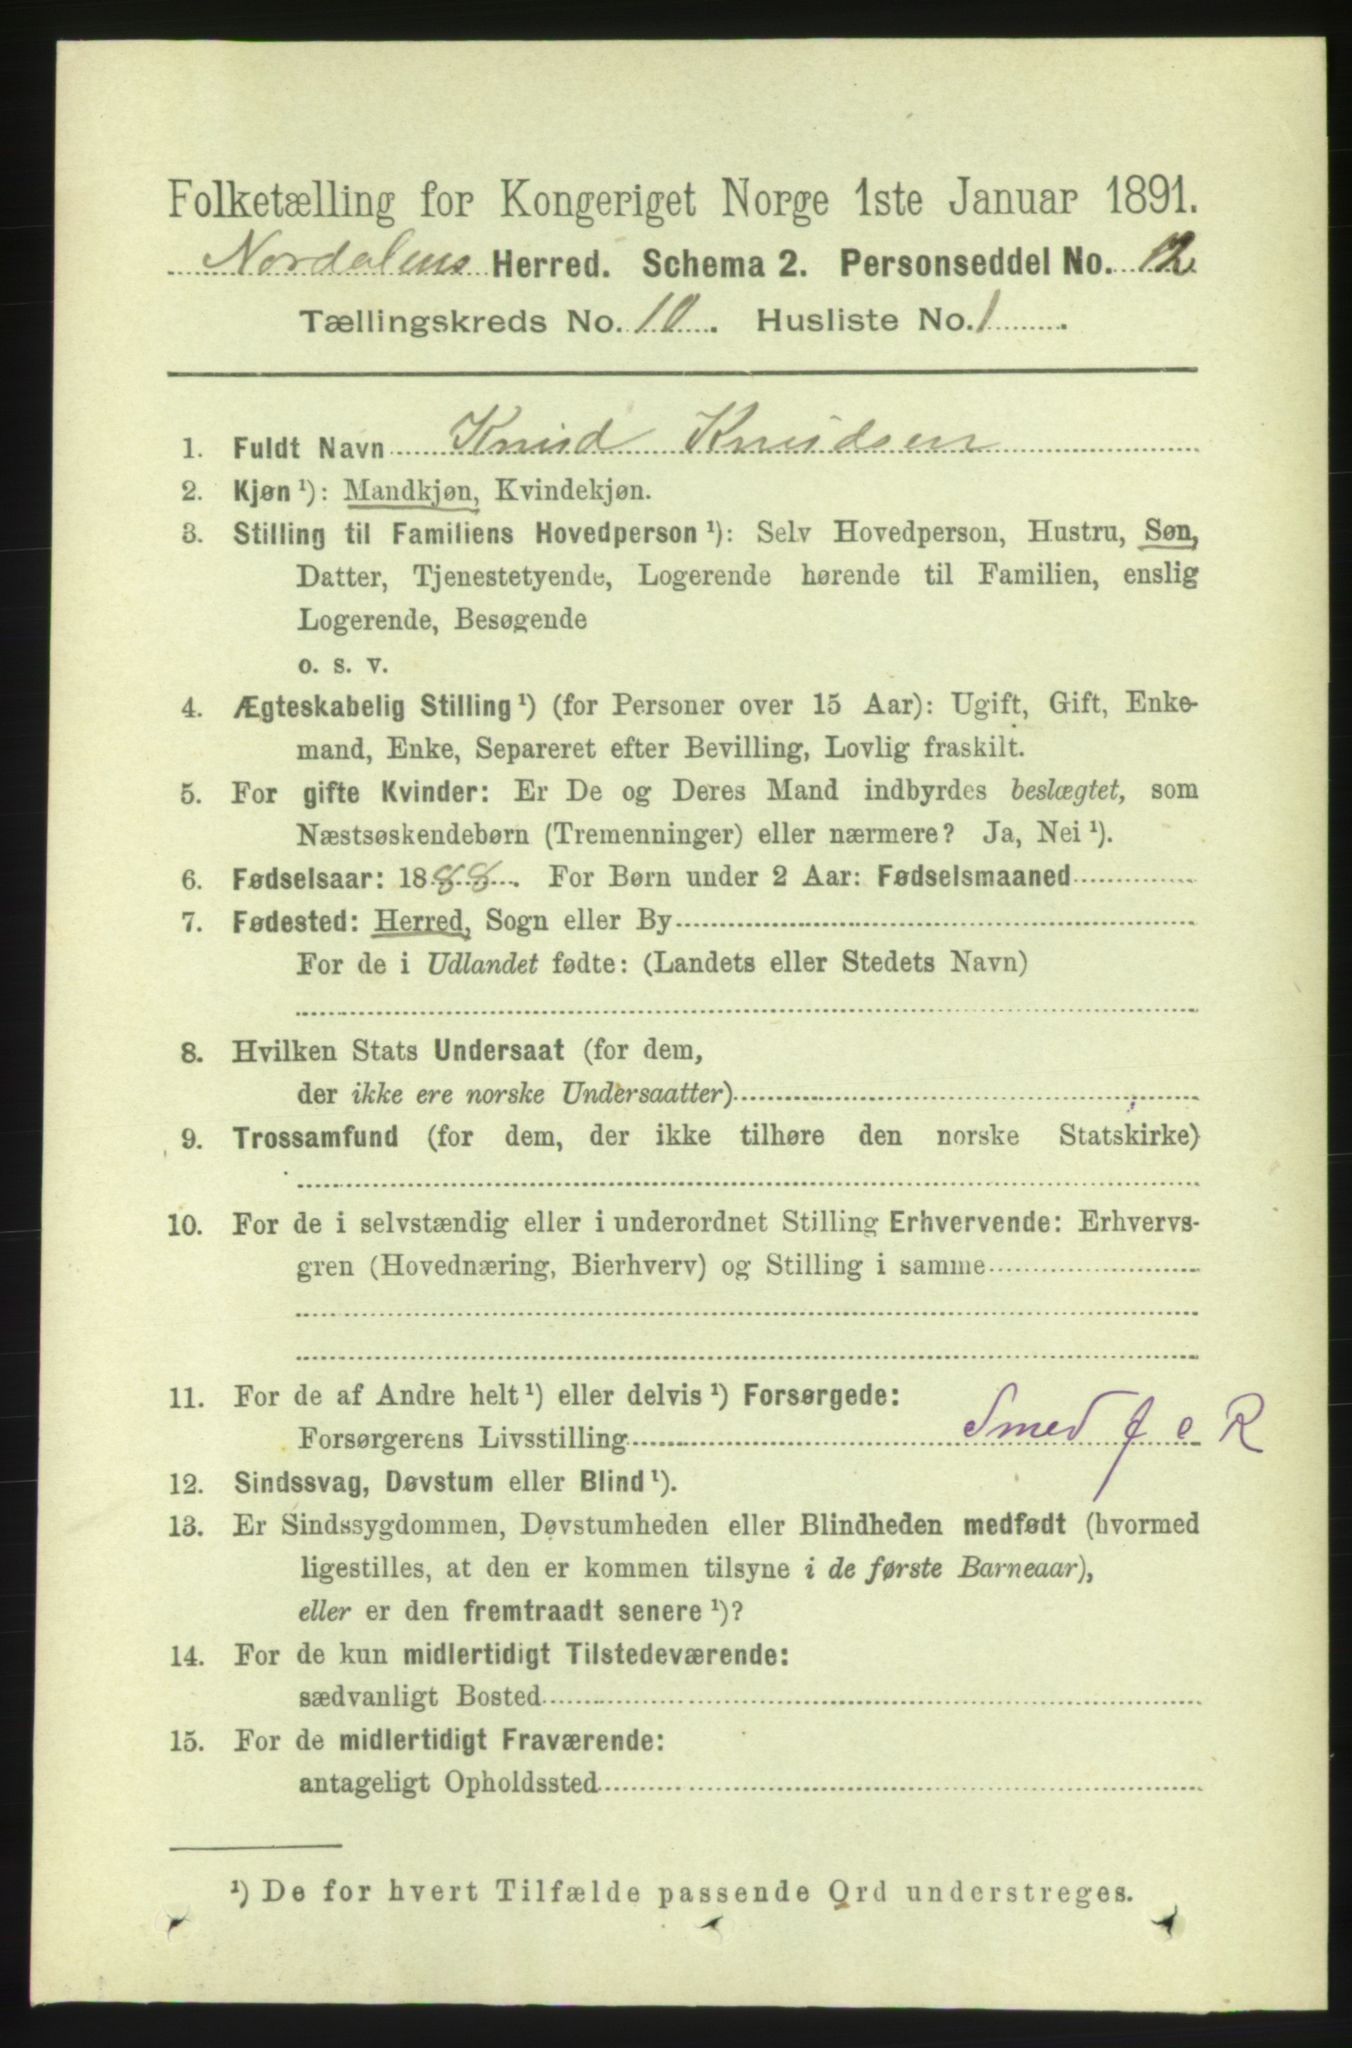 Folketælling for Kongeriget Norge 1ste Januar 1891.
Nordalens Herred. Schema 2. Personseddel No. 12
Tællingskreds No. 10. Husliste No. 1.
1. Fuldt Navn Knud Knudsen
2. Kjøn ¹): Mandkjøn, Kvindekjøn.
3. Stilling til Familiens Hovedperson ¹): Selv Hovedperson, Hustru, Søn,
Datter, Tjenestetyende, Logerende hørende til Familien, enslig
Logerende, Besøgende
o. s. v.
4. Ægteskabelig Stilling ¹) (for Personer over 15 Aar): Ugift, Gift, Enke-
mand, Enke, Separeret efter Bevilling, Lovlig fraskilt.
5. For gifte Kvinder: Er De og Deres Mand indbyrdes beslægtet, som
Næstsøskendebørn (Tremenninger) eller nærmere? Ja, Nei ¹).
6. Fødselsaar: 1888. For Børn under 2 Aar: Fødselsmaaned
7. Fødested: Herred, Sogn eller By
For de i Udlandet fødte: (Landets eller Stedets Navn)
8. Hvilken Stats Undersaat (for dem,
der ikke ere norske Undersaatter)
9. Trossamfund (for dem, der ikke tilhøre den norske Statskirke)
10. For de i selvstændig eller i underordnet Stilling Erhvervende: Erhvervs-
gren (Hovednæring, Bierhverv) og Stilling i samme
11. For de af Andre helt ¹) eller delvis ¹) Forsørgede:
Forsørgerens Livsstilling Smed f e R
12. Sindssvag, Døvstum eller Blind ¹).
13. Er Sindssygdommen, Døvstumheden eller Blindheden medfødt (hvormed
ligestilles, at den er kommen tilsyne i de første Barneaar),
eller er den fremtraadt senere ¹)?
14. For de kun midlertidigt Tilstedeværende:
sædvanligt Bosted
15. For de midlertidigt Fraværende:
antageligt Opholdssted
¹) De for hvert Tilfælde passende Ord understreges.